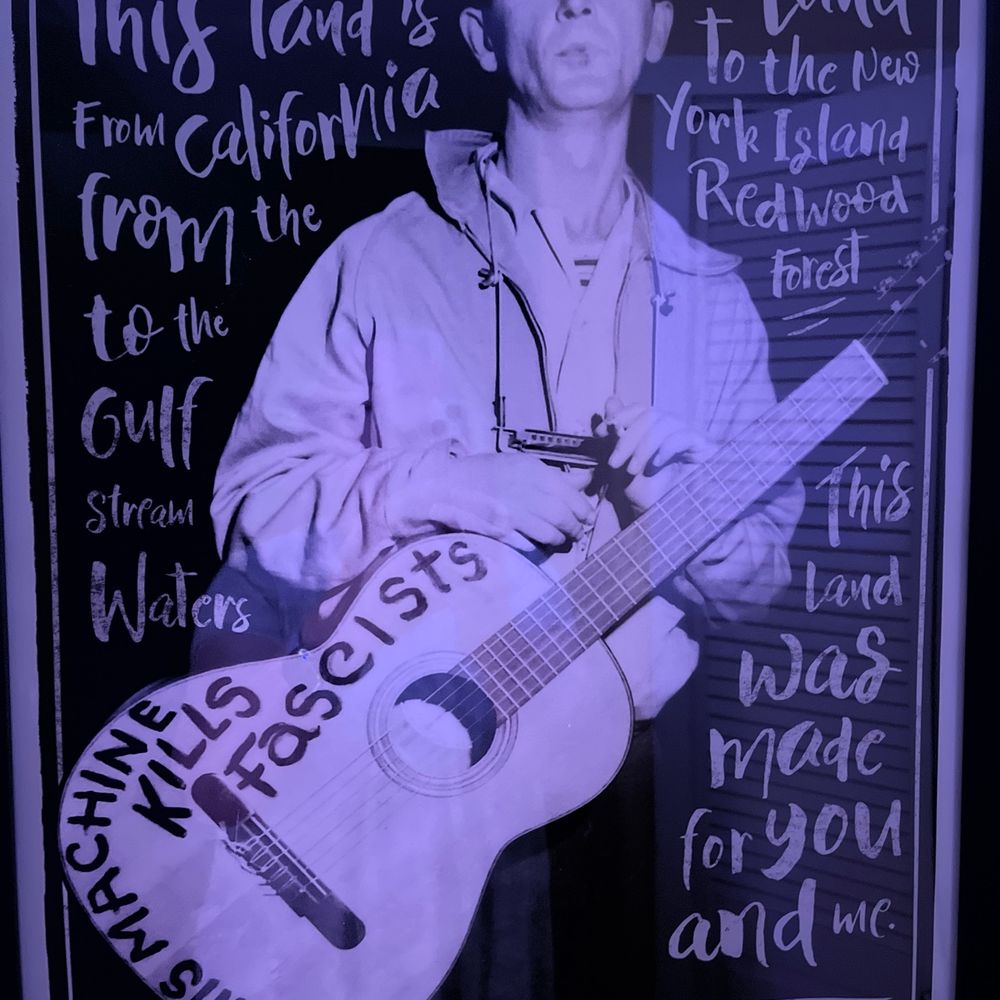 This land is
From California
from the
to the
Gulf
Stream
Waters
Land
To the New
York Island
Redwood
Forest
This
land
was
made
for you
and me.
THIS MACHINE
KILLS
FASCISTS